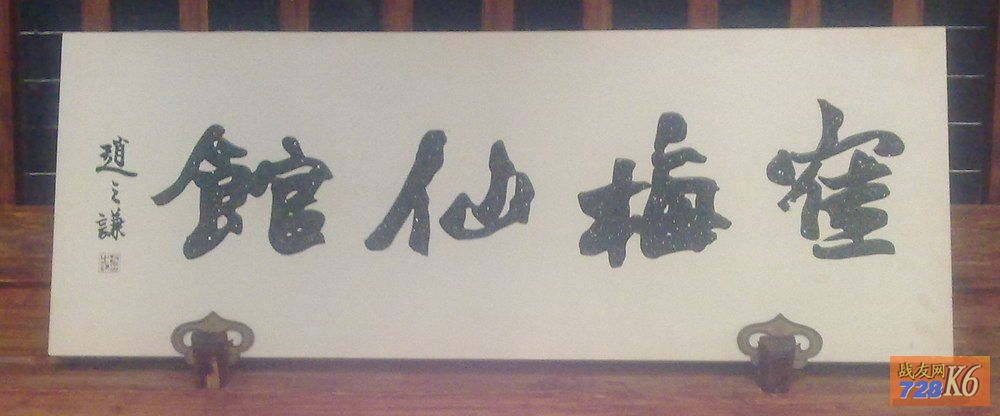 寉梅仙館
趙之謙
战友网
728K6